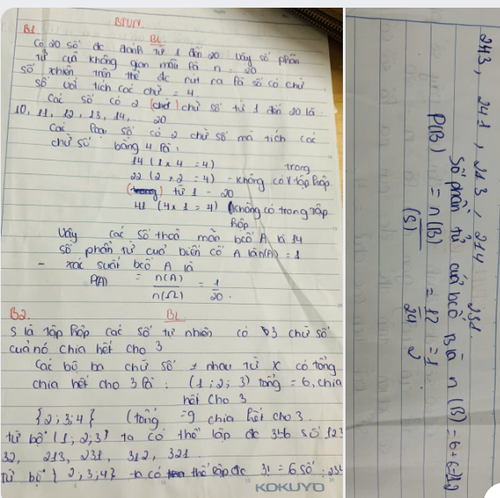 BTVN
B1 BL
Có 20 số đc đánh từ 1 đến 20 Vậy số phần
tử của không gian mẫu là n = 20
số trên thẻ đc rút ra là số có chữ
số với tích các chữ = 4
Các số có 2 chữ số từ 1 đến 20 là
10, 11, 12, 13, 14, 20
Các số có 2 chữ số mà tích các
chữ số bằng 4 là:
14 (1 x 4 = 4)
22 (2 x 2 = 4) - không có trong tập hợp
từ 1 - 20
41 (4 x 1 = 4) (không có trong tập
hợp
Vậy các số thoả mãn bcố A là 14
số phần tử của biến cố A là n(A) = 1
- xác suất bcố A là
P(A) = n(A) / n(Ω) = 1 / 20.
B2. BL
S là tập hợp các số tự nhiên có 3 chữ số
của nó chia hết cho 3
Các bộ ba chữ số ≠ nhau từ X có tổng
chia hết cho 3 là: (1; 2; 3) tổng = 6, chia
hết cho 3
{2; 3; 4} (tổng = 9 chia hết cho 3
từ bộ (1; 2; 3) ta có thể lập đc số 123
32, 213, 231, 312, 321
từ bộ {2, 3, 4} ta có thể lập đc 3! = 6 số: 234
243, 241, 213, 214 231.
Số phần tử của bcố B là n(B) = 6 + 6 = 12
P(B) = n(B) / (S) = 12 / 24 = 1 / 2
KOKUYO